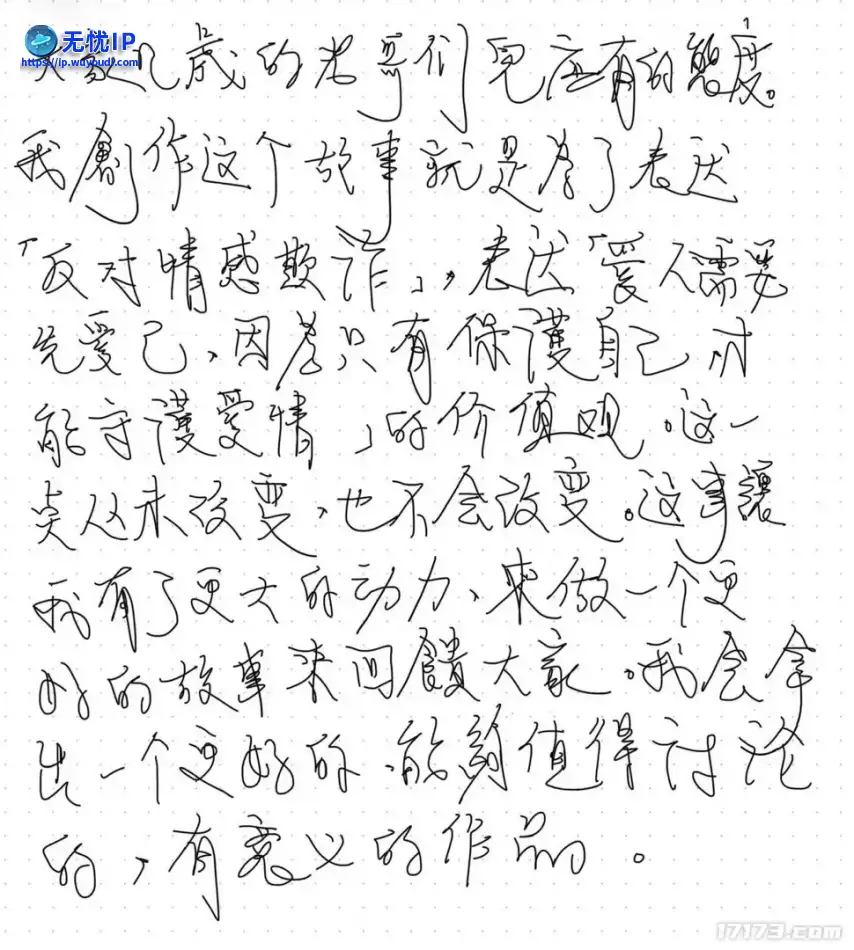 无忧IP
https://ip.wuyoudl.com
几歲的老哥们兒应有的態度。
我創作这个故事就是為了表达
「反对情感欺诈」,表达「愛人需要
先愛己、因為只有保護自己才
能守護愛情」的价值观。这一
点从未改变、也不会改变。这事讓
我有了更大的动力、来做一个更
好的故事来回饋大家。我会拿
出一个更好的、能夠值得讨论
的,有意义的作品。
17173.com